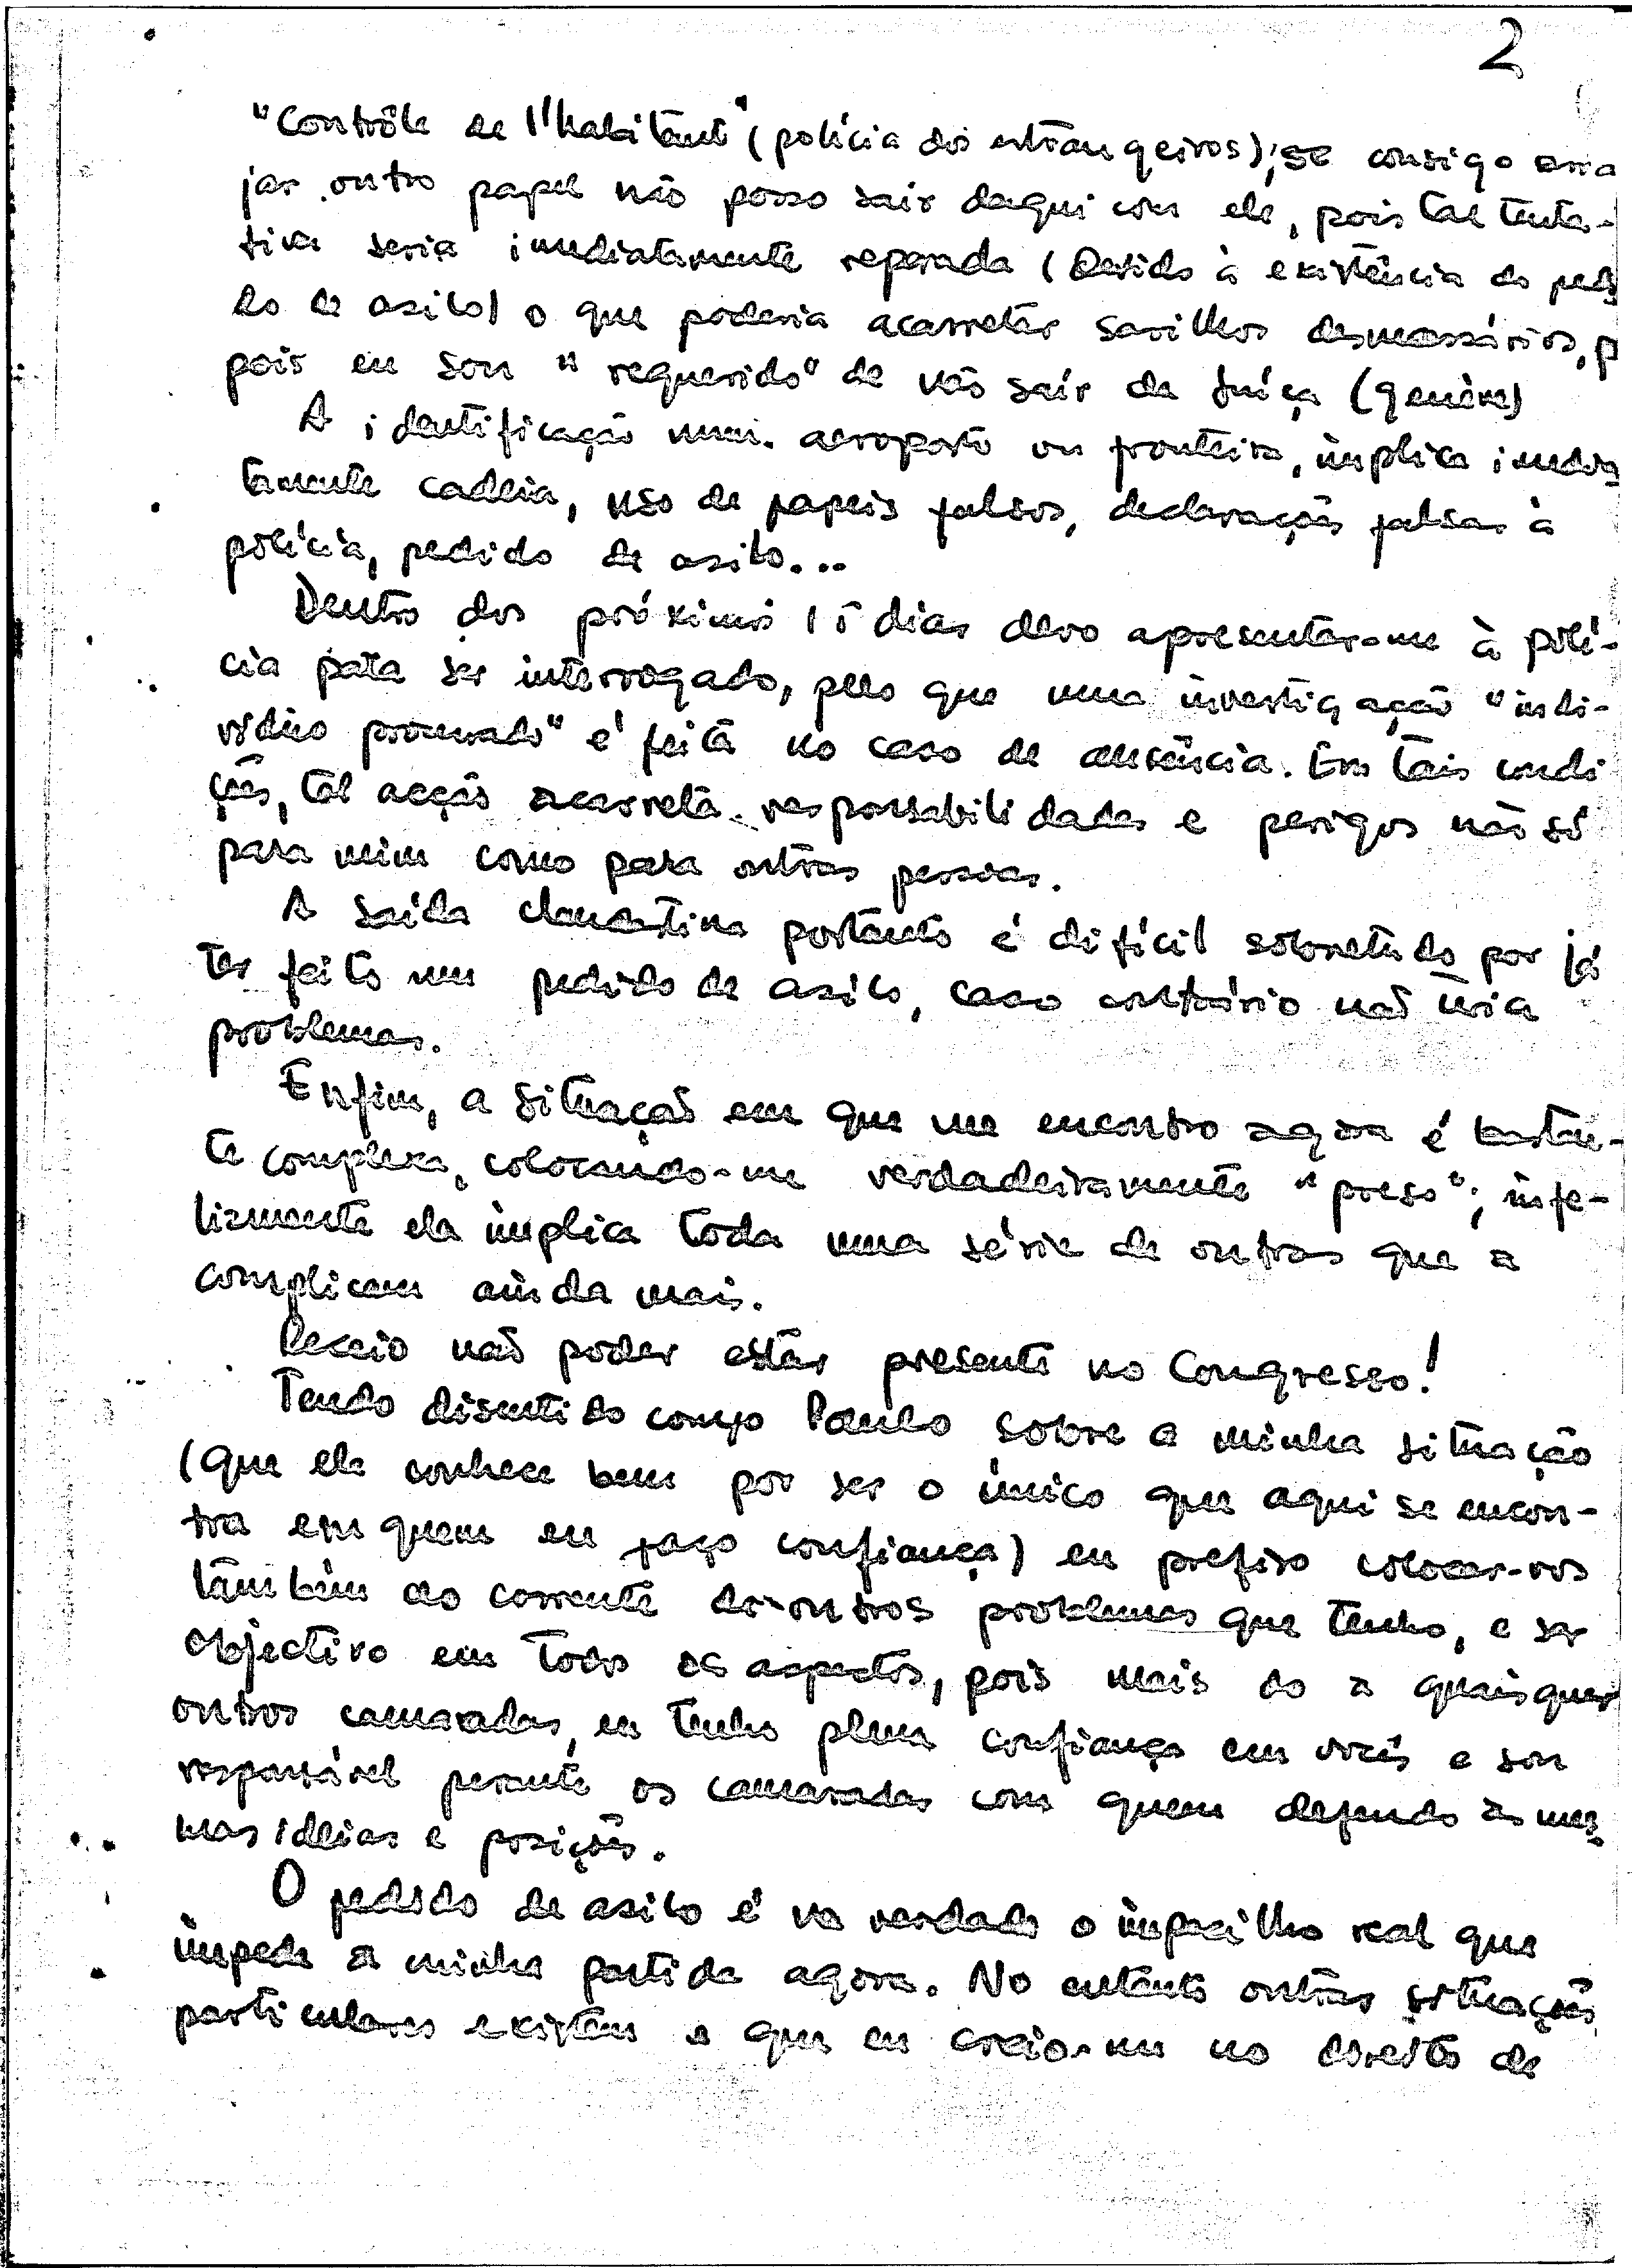 2
"Contrôle de l'habitant" (polícia dos estrangeiros); se consigo arra
jar outro papel não posso sair daqui com ele, pois tal tenta-
tiva seria imediatamente reparada (devido à existência do pedi
do de asilo) o que poderia acarretar sarilhos desnecessários, p
pois eu sou "requerido" de não saír da Suíça (genève)
A identificação num aeroporto ou fronteira, implica imedia
tamente cadeia, uso de papeis falsos, declarações falsas à
polícia, pedido de asilo...
Dentro dos próximos 15 dias devo apresentar-me à polí-
cia para ser interrogado, pelo que uma investigação "indi-
viduo procurado" é feita no caso de ausência. Em tais condi
ções, tal acção acarreta responsabilidades e perigos não só
para mim como para outras pessoas.
A saída clandestina portanto é difícil sobretudo por já
ter feito um pedido de asilo, caso contrário não teria
problemas.
Enfim, a situação em que me encontro agora é bastan-
te complexa, colocando-me verdadeiramente "preso"; infe-
lizmente ela implica toda uma série de outras que a
complicam ainda mais.
Receio não poder estar presente no Congresso!
Tendo discutido com o Paulo sobre a minha situação
(que ele conhece bem por ser o único que aqui se encon-
tra em quem eu faço confiança) eu prefiro colocar-vos
também ao corrente de outros problemas que tenho, e ser
objectivo em todos os aspectos, pois mais do a quaisquer
outros camaradas, eu tenho plena confiança em vocês e sou
responsável perante os camaradas com quem defendo as mes
mas ideias e posições.
O pedido de asilo é na verdade o impecilho real que
impede a minha partida agora. No entanto outras situações
particulares existem e que eu creio-me no direito de